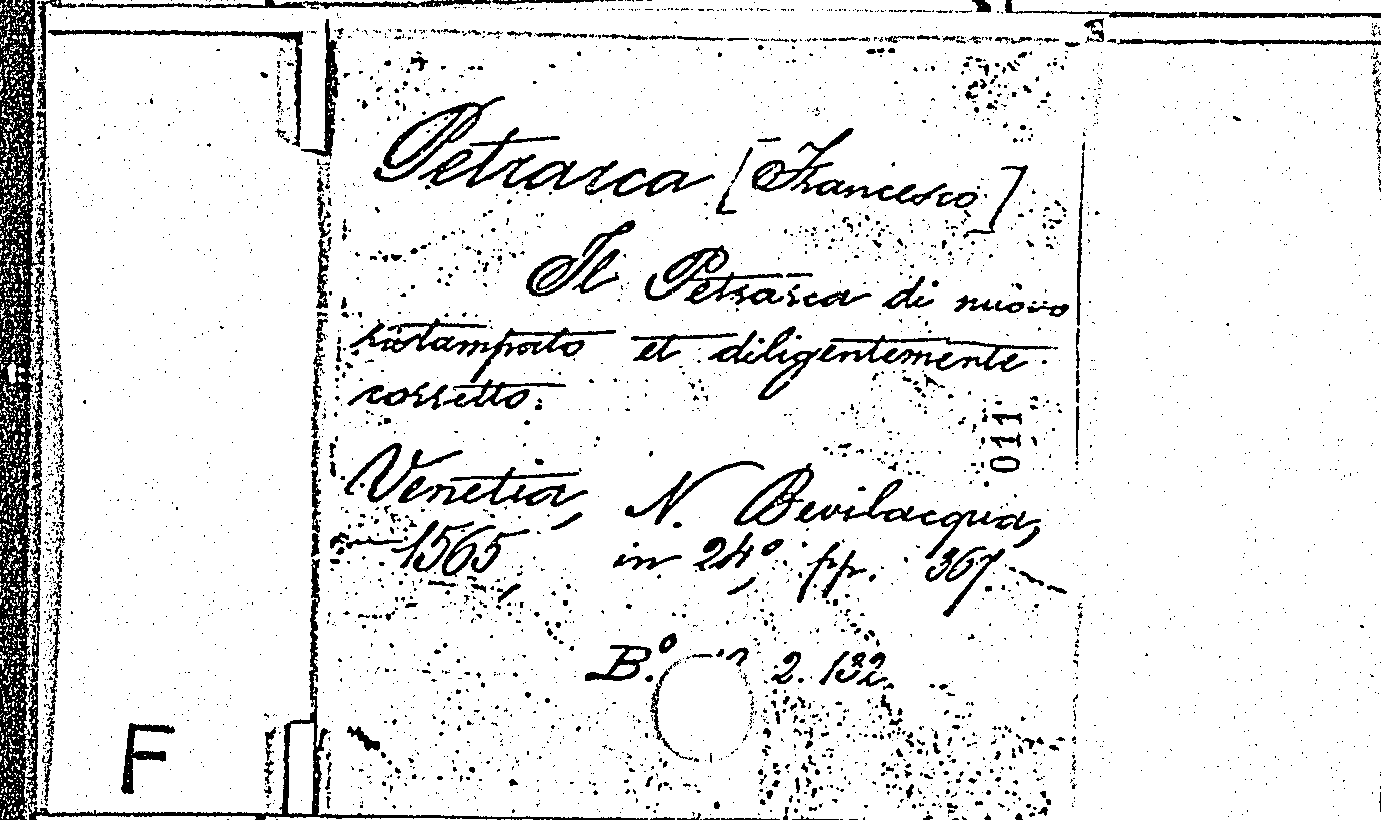 Petrarca [Francesco]
Il Petrarca di nuovo
ristampato et diligentemente
corretto.
Venetia, N. Bevilacqua,
1565, in 24°, pp. 367
B.° 2. 132.
011
F